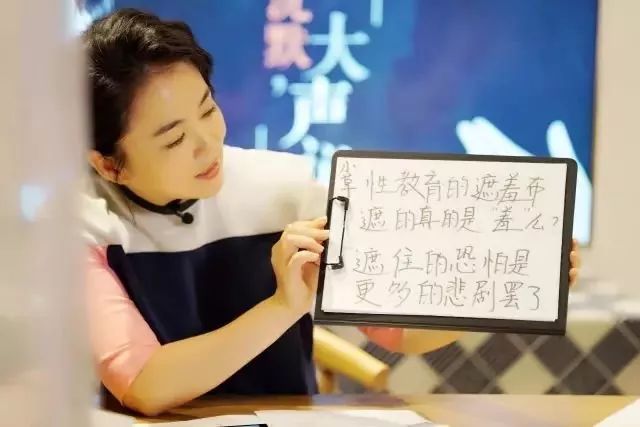 默，
大声
性教育的遮羞布
遮的真的是“羞”么？
遮住的恐怕是
更多的悲剧罢了